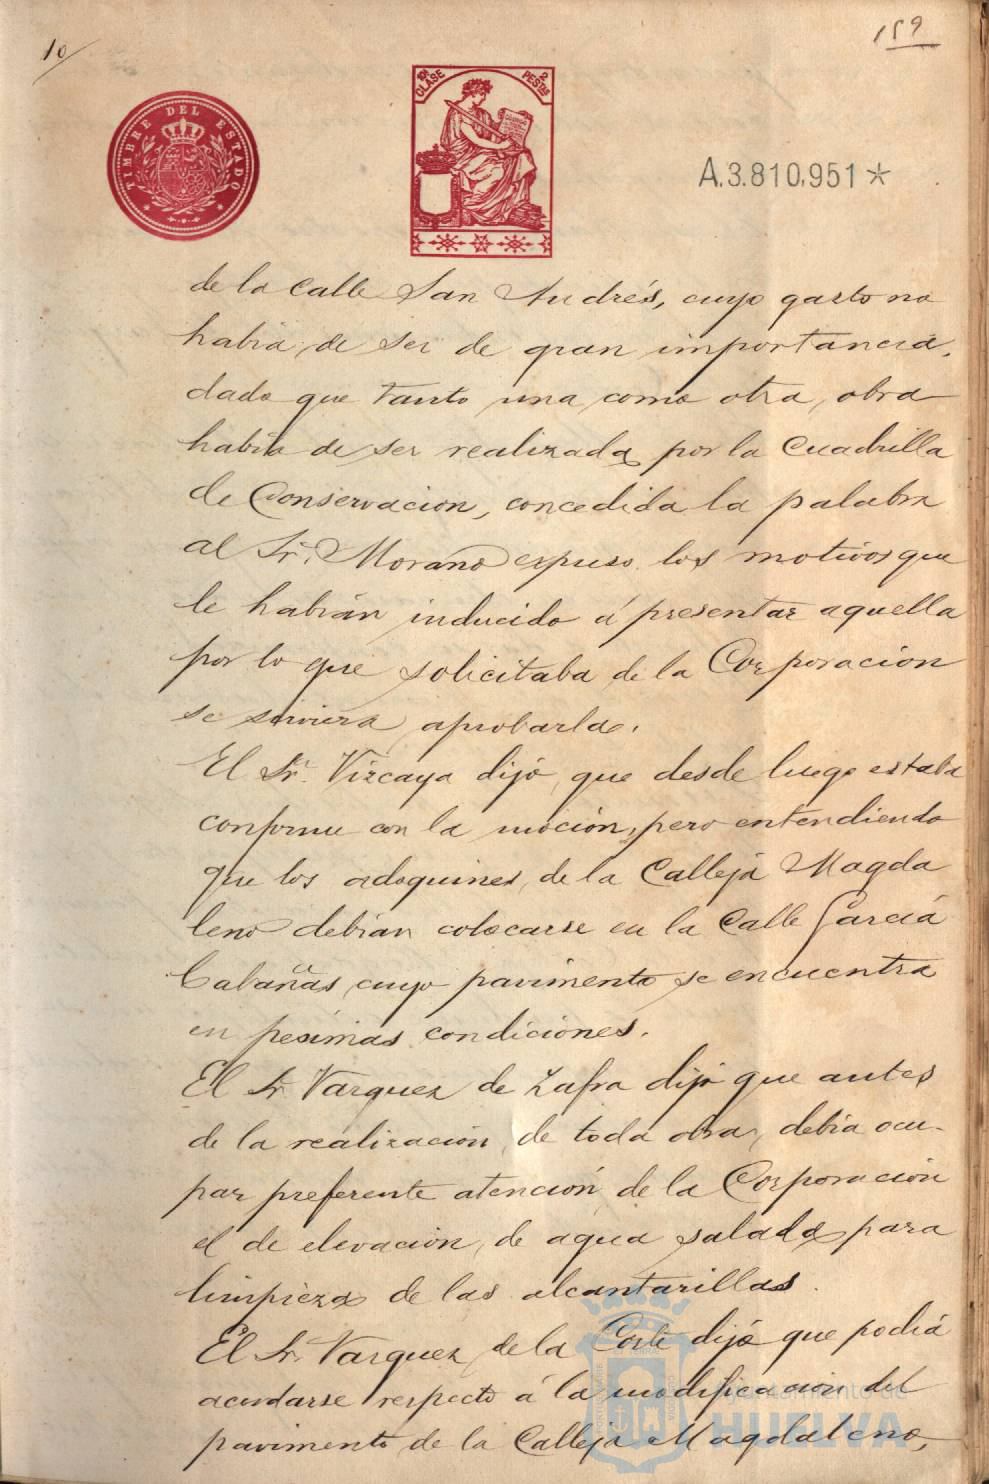 10/
159
TIMBRE DEL ESTADO
10ª CLASE
2 PESTAS
A.3.810,951*
de la Calle San Andrés, cuyo gasto no
habia de ser de gran importancia,
dado que tanto una como otra, obra
habia de ser realizada por la Cuadrilla
de Conservacion, concedida la palabra
al Sr. Morano expuso los motivos que
le habian inducido á presentar aquella
por lo que solicitaba de la Corporacion
se serviera aprobarla.
El Sr. Vizcaya dijo que desde luego estaba
conforme con la mocion, pero entendiendo
que los adoquines de la Calleja Magda
leno debian colocarse en la Calle Garcia
Cabañas cuyo pavimento se encuentra
en pesimas condiciones.
El Sr Vazquez de Zafra dijo que antes
de la realizacion de toda obra, debia ocu-
par preferente atencion de la Corporacion
el de elevacion de agua salada para
limpieza de las alcantarillas.
El Sr. Vazquez de la Corte dijo que podia
acordarse respecto á la modificacion del
pavimento de la Calleja Magdaleno,
Ayuntamiento de
HUELVA